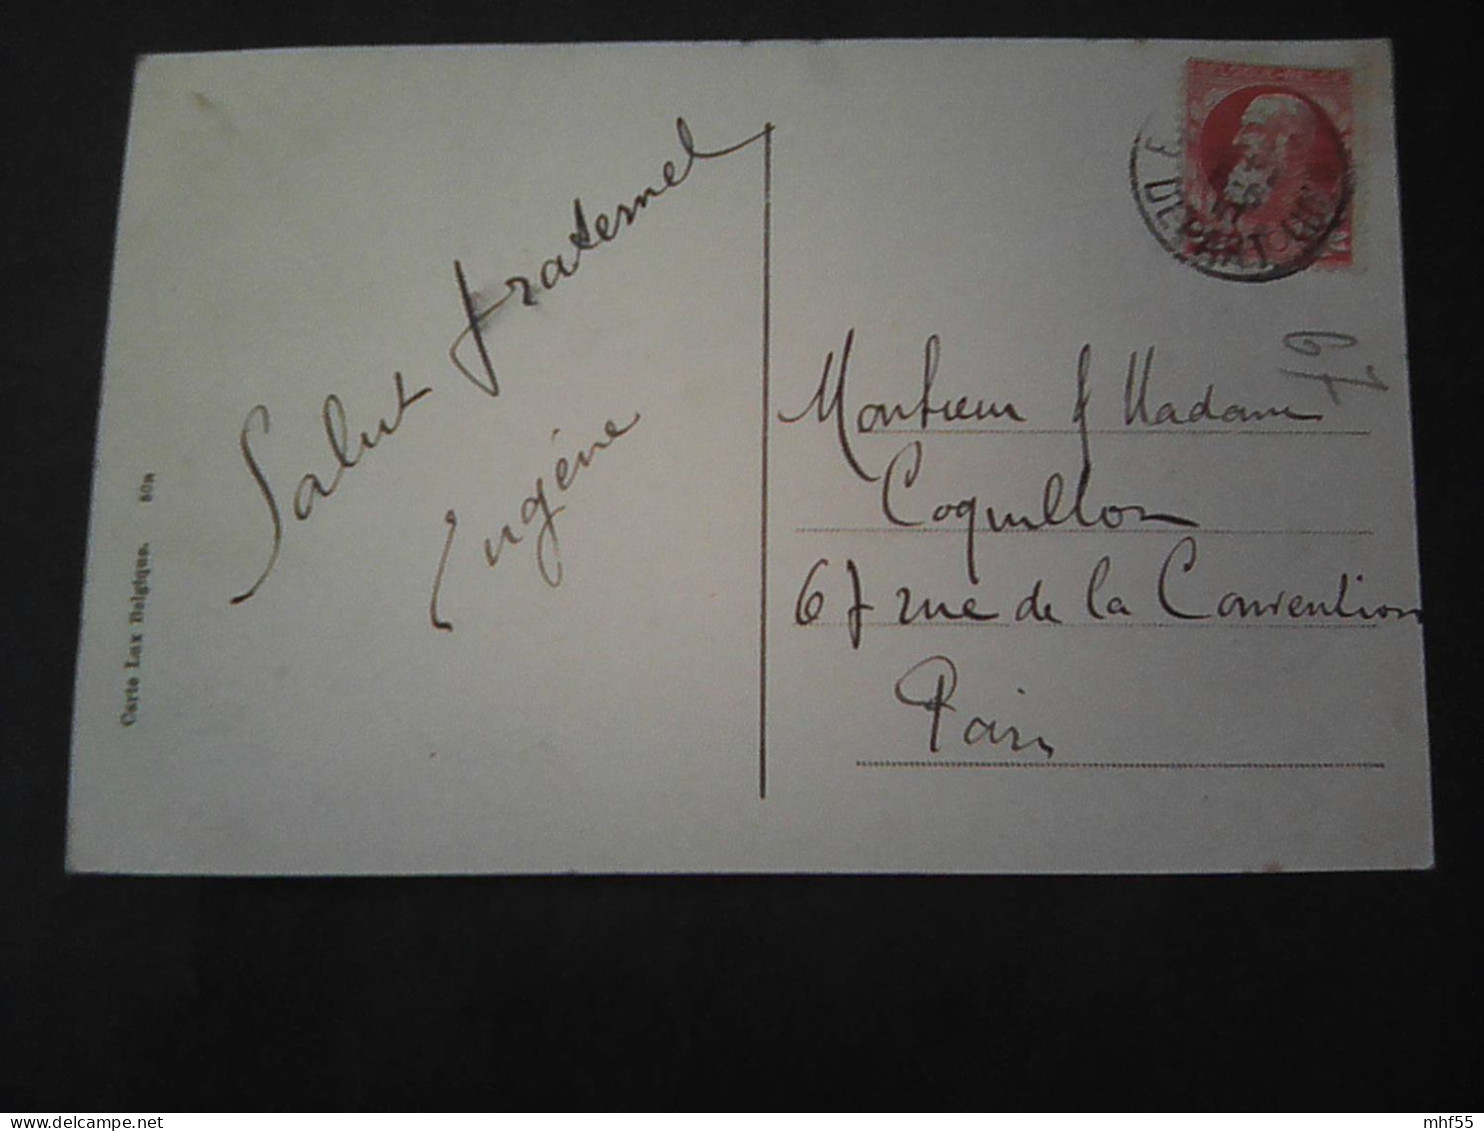 Salut fraternel
Eugène
Carte Lux Belgique. 50n
DEPART
Monsieur & Madame
Coquillon
67 rue de la Convention
Paris
mhf55